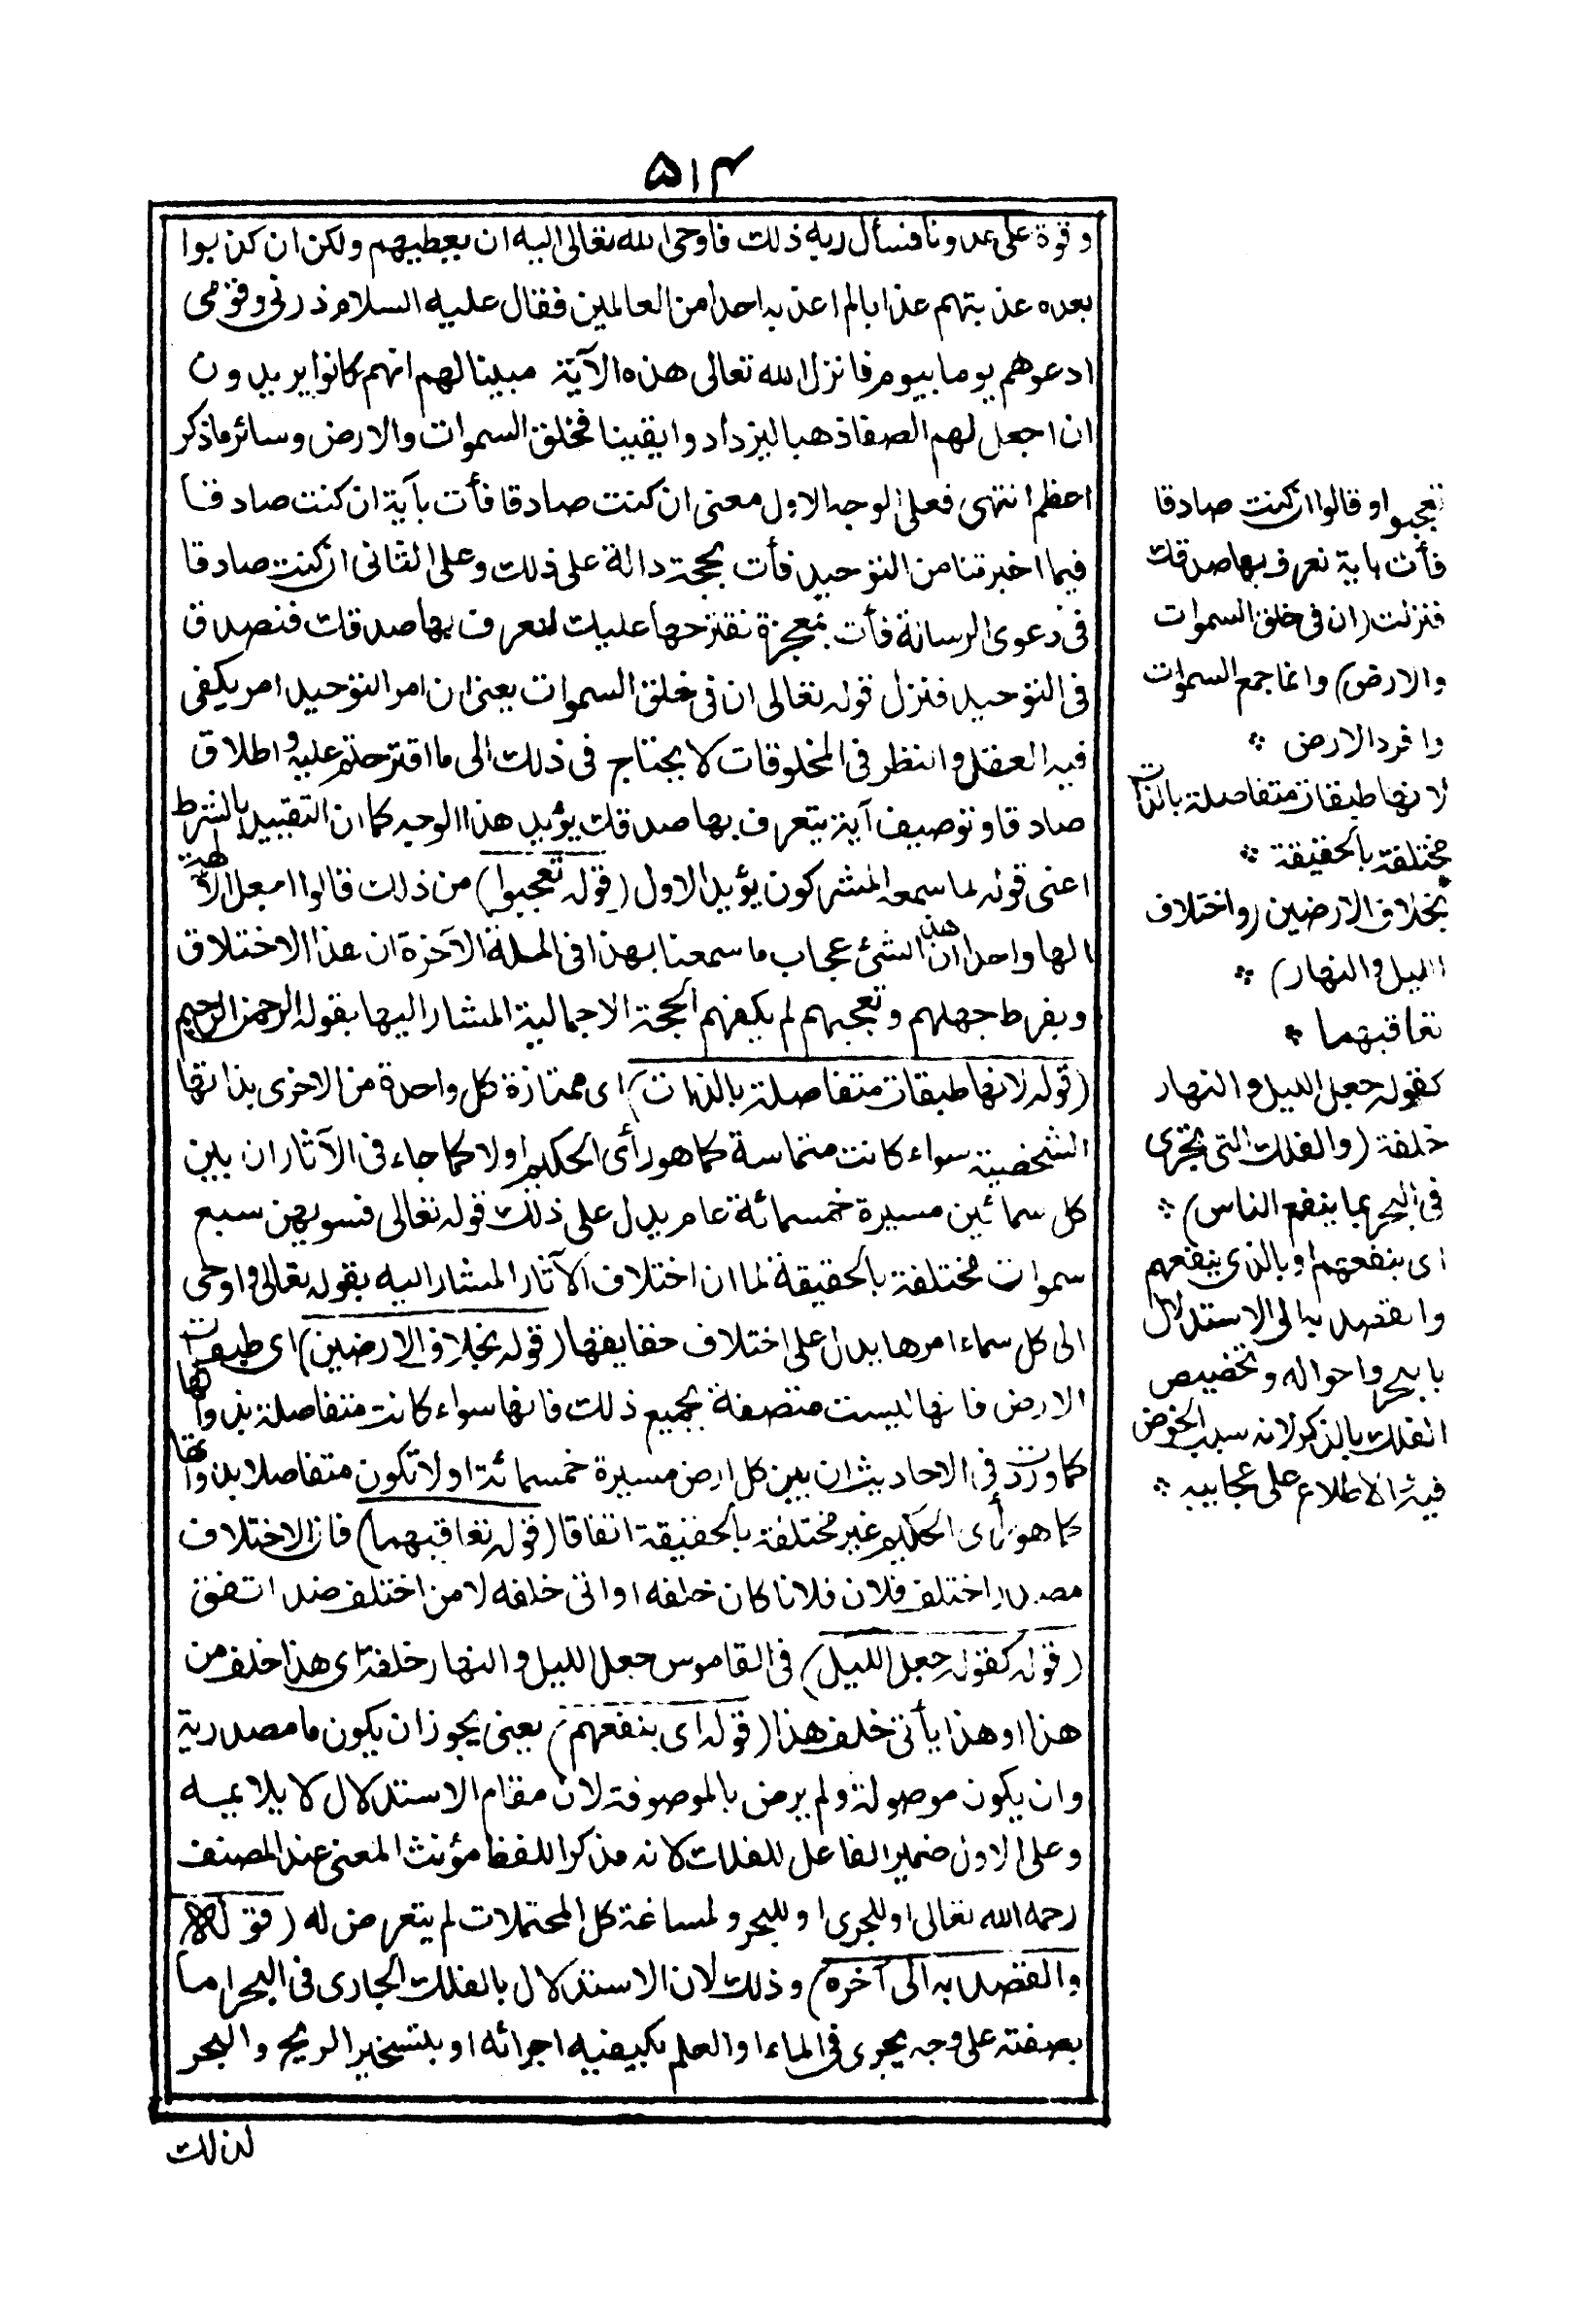 ۵۱۴
وقوة على عدونا فسأل ربه ذلك فاوحى الله تعالى اليه ان يعطيهم ولكن ان كذبوا
بعده عذبتهم عذابا لم اعذبه احدا من العالمين فقال عليه السلام ذرني وقومى
ادعوهم يوما بيوم فانزل الله تعالى هذه الآية مبينا لهم انهم كانوا يريدون
ان اجعل لهم الصفا ذهبا ليزدادوا يقينا فخلق السموات والارض وسائر ما ذكر
اعظم انتهى فعلى الوجه الاول معنى ان كنت صادقا فأت بآية ان كنت صادقا
فيما اخبرتنا من التوحيد فأت بحجة دالة على ذلك وعلى الثانى ان كنت صادقا
فى دعوى الرسالة فأت بمعجزة نقترحها عليك لنعرف بها صدقك فنصدق
فى التوحيد فنزل قوله تعالى ان فى خلق السموات يعنى ان امر التوحيد امر يكفى
فيه العقل والنظر فى المخلوقات لا يحتاج فى ذلك الى ما اقترحتم عليه واطلاق
صادقا وتوصيف آية بتعرف بها صدقك يؤيد هذا الوجه كما ان التقييد بالشرط
اعنى قوله لما سمعه المشركون يؤيد الاول (قوله تعجبوا) من ذلك قالوا اجعل الآلهة
الها واحدا ان هذا لشئ عجاب ما سمعنا بهذا فى الملة الآخرة ان هذا الا اختلاق
وبفرط جهلهم وتعجبهم لم يكفهم الحجة الاجمالية المشار اليها بقوله الرحمن الرحيم
(قوله لانها طبقات متفاصلة بالذات) اى ممتازة كل واحدة من الاخرى بذاتها
الشخصية سواء كانت متماسة كما هو رأى الحكيم اولا كما جاء فى الآثار ان بين
كل سمائين مسيرة خمسمائة عام يدل على ذلك قوله تعالى فسويهن سبع
سموات مختلفة بالحقيقة لما ان اختلاف الآثار المشار اليه بقوله تعالى واوحى
الى كل سماء امرها يدل على اختلاف حقايقها (قوله بخلاف الارضين) اى طبقات
الارض فانها ليست متصفة بجميع ذلك فانها سواء كانت متفاصلة بذواتها
كما ورد فى الاحاديث ان بين كل ارض مسيرة خمسمائة اولا تكون متفاصلا بذواتها
كما هو رأى الحكيم غير مختلفة بالحقيقة اتفاقا (قوله تعاقبهما) فان الاختلاف
مصدر اختلف فلان فلانا كان خلفه او اتى خلفه لا من اختلف ضد اتفق
(قوله كقوله جعل الليل) فى القاموس جعل الليل والنهار خلفة اى هذا خلف من
هذا او هذا يأتى خلف هذا (قوله اى بنفعهم) يعنى يجوز ان يكون ما مصدرية
وان يكون موصولة ولم يرض بالموصوفة لان مقام الاستدلال لا يلايمه
وعلى الاول ضمير الفاعل للفلك لانه مذكر اللفظ مؤنث المعنى عند المصنف
رحمه الله تعالى او للجرى او للبحر ولمساغة كل المحتملات لم يتعرض له (قوله
والقصد به الى آخره) وذلك لان الاستدلال بالفلك الجارى فى البحر اما
بصفته على وجه يجرى فى الماء او العلم بكيفية اجرائه او بتسخير الريح والبحر
لذلك
تعجبوا وقالوا ان كنت صادقا
فأت بآية نعرف بها صدقك
فنزلت (ان فى خلق السموات
والارض) وانما جمع السموات
وافرد الارض
لانها طبقات متفاصلة بالذات
مختلفة بالحقيقة
بخلاف الارضين (واختلاف
الليل والنهار)
تعاقبهما
كقوله جعل الليل والنهار
خلفة (والفلك التى تجرى
فى البحر بما ينفع الناس)
اى بنفعهم او بالذى ينفعهم
والقصد به الى الاستدلال
بالبحر واحواله وتخصيص
الفلك بالذكر لانه سبب الخوض
فيه والاطلاع على عجايبه